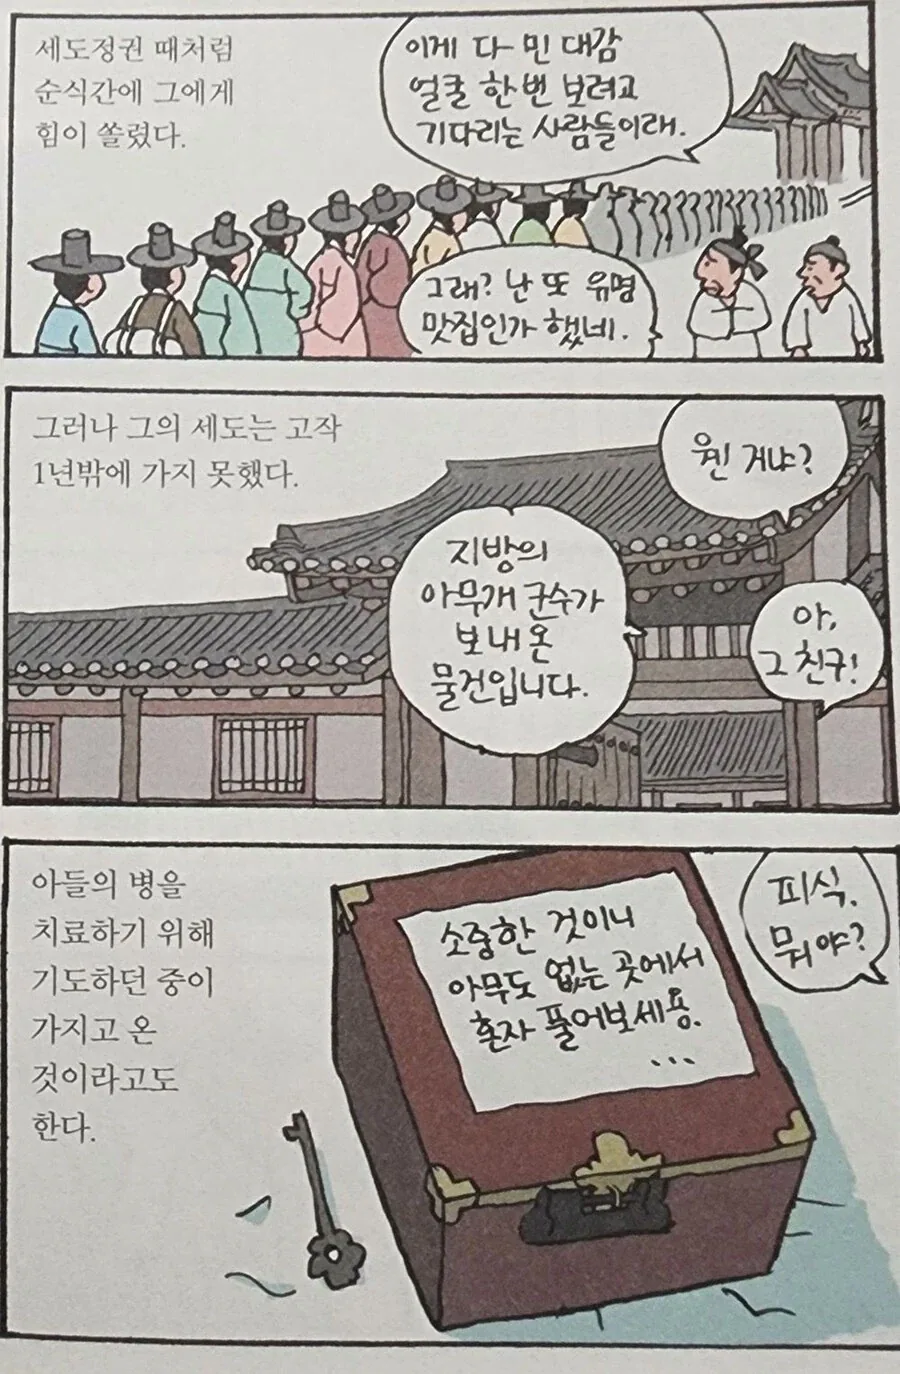 세도정권 때처럼
순식간에 그에게
힘이 쏠렸다.
이게 다 민 대감
얼굴 한번 보려고
기다리는 사람들이래.
그래? 난 또 유명
맛집인가 했네.
그러나 그의 세도는 고작
1년밖에 가지 못했다.
웬 거냐?
지방의
아무개 군수가
보내온
물건입니다.
아,
그 친구!
아들의 병을
치료하기 위해
기도하던 중이
가지고 온
것이라고도
한다.
소중한 것이니
아무도 없는 곳에서
혼자 풀어보세용.
...
피식.
뭐야?